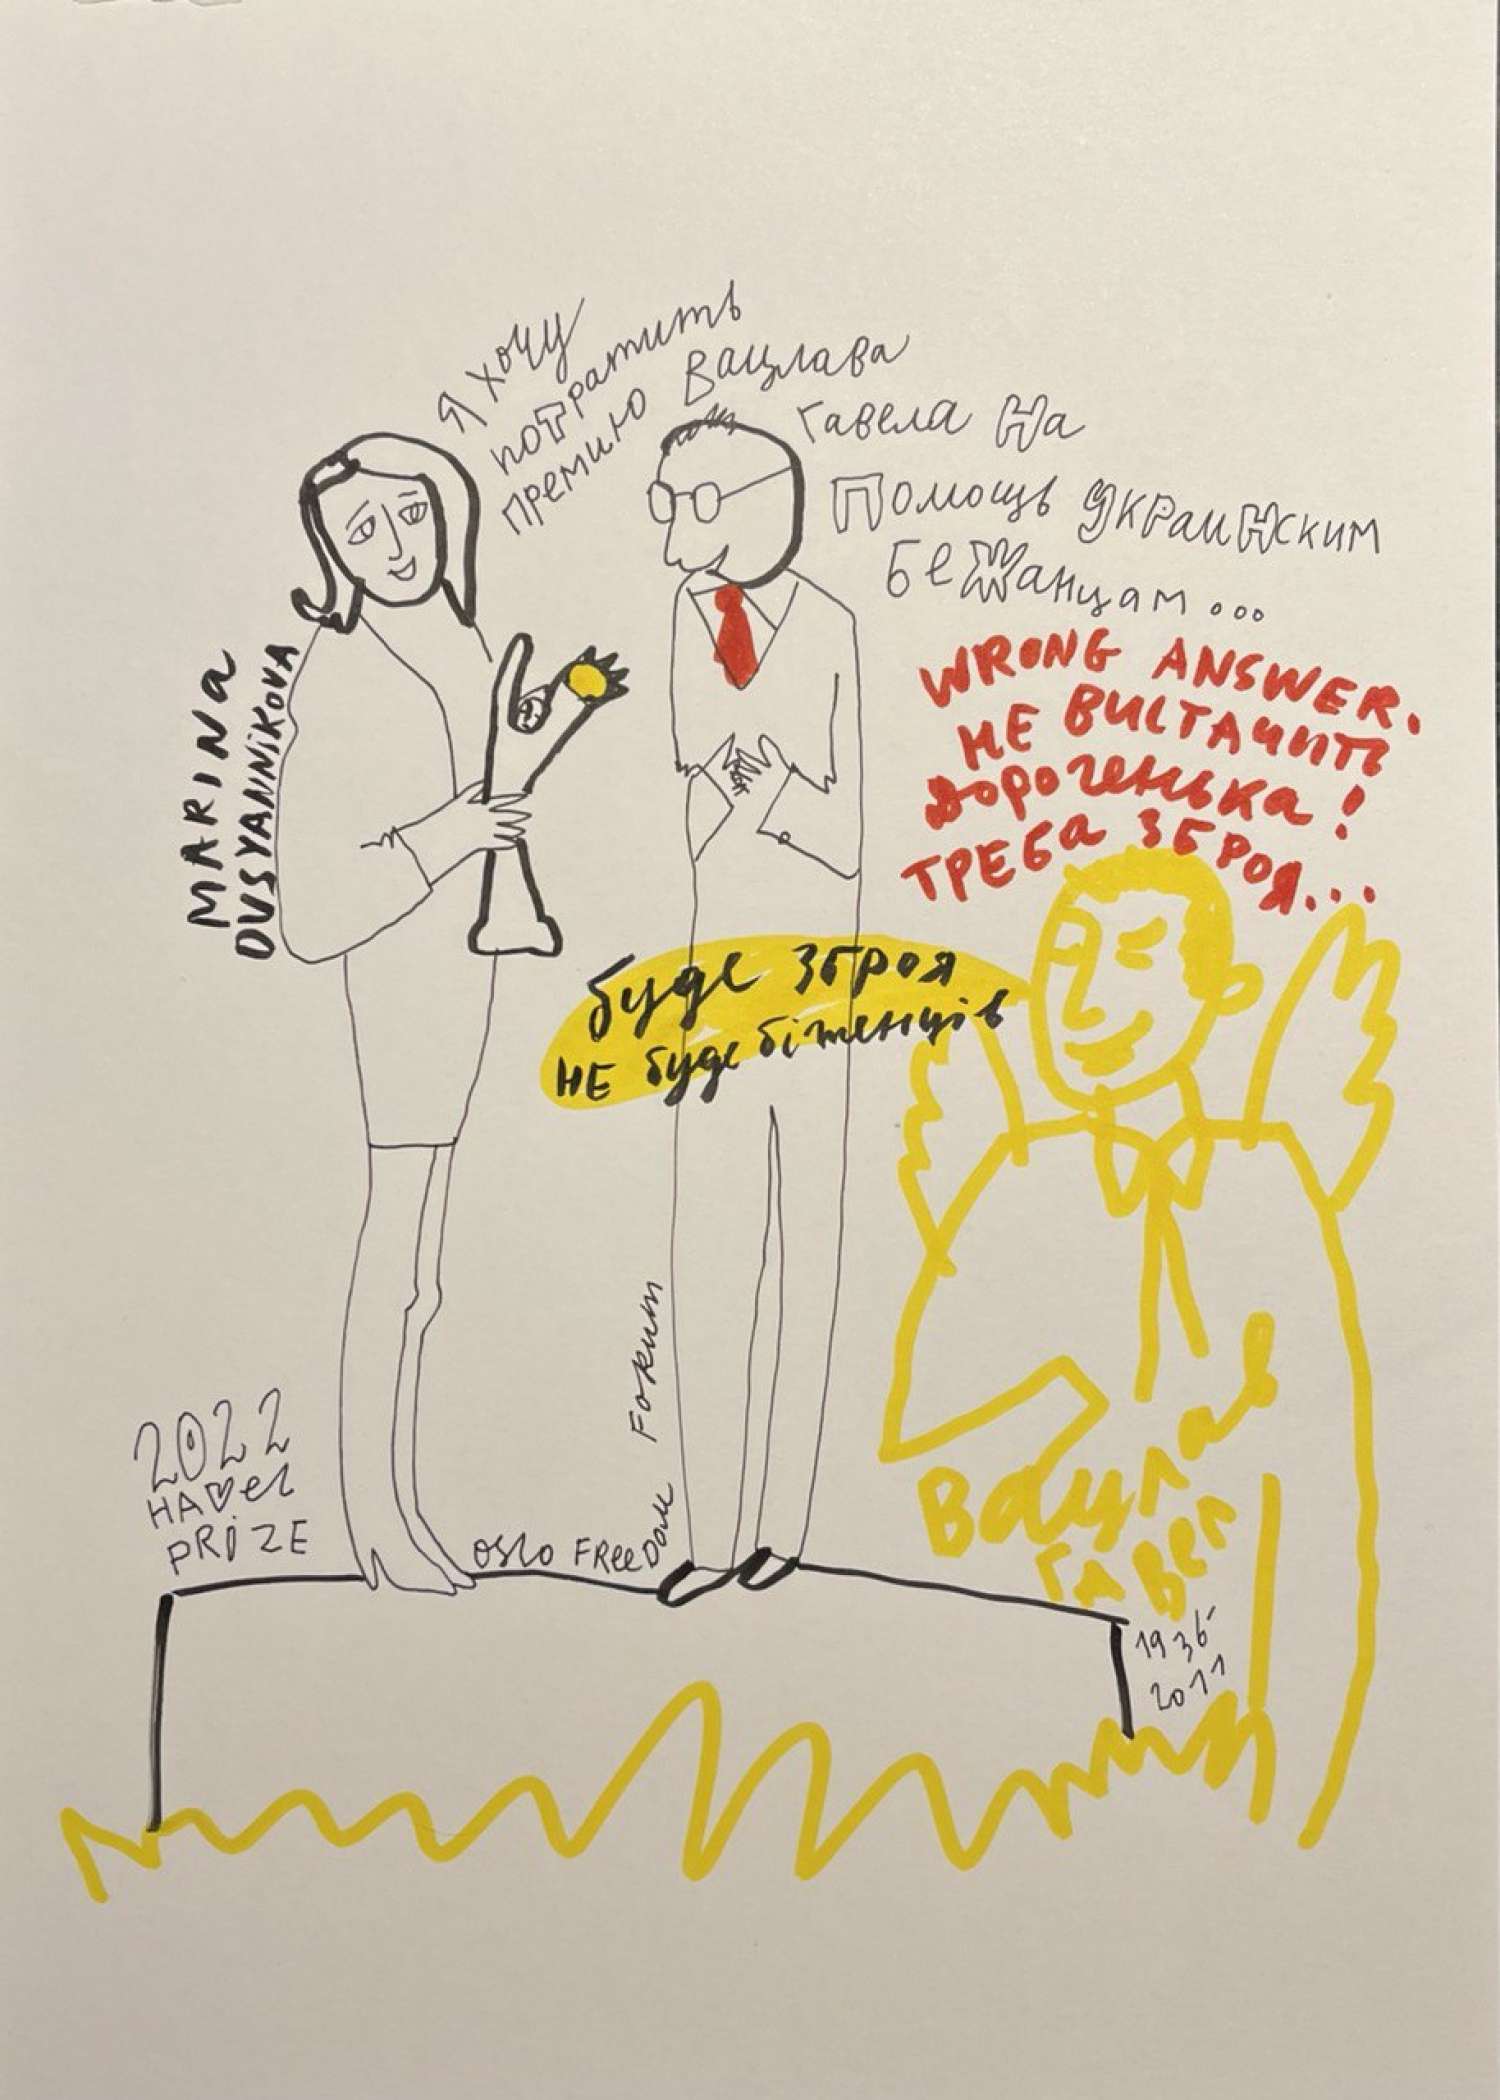 Я хочу
потратить
премию Вацлава
Гавела на
помощь украинским
беженцам...
WRONG ANSWER.
НЕ ВИСТАЧИТЬ
дорогенька!
ТРЕБА ЗБРОЯ...
MARINA
OVSYANNIKOVA
буде зброя
НЕ буде біженців
2022
HAVEL
PRIZE
OSLO FREEDOM
Вацлав
Гавел
1936
2011